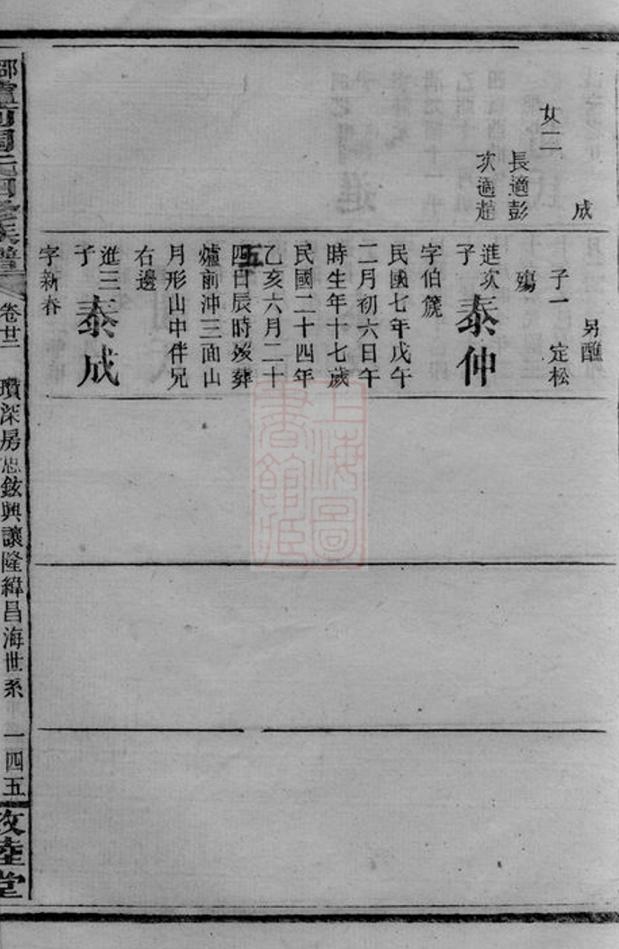 成
女二
長適彭
次適趙
另醮
子一 定松
殤
進次子 泰仲
字伯篪
民國七年戊午
二月初六日午
時生年十七歲
民國二十四年
乙亥六月二十
五
四日辰時歿葬
爐前沖三面山
月形山中伴兄
右邊
進三子 泰成
字新春
卷廿二
瓚深房忠鉉興讓隆緯昌海世系
一四五
敦睦堂
上海圖書館